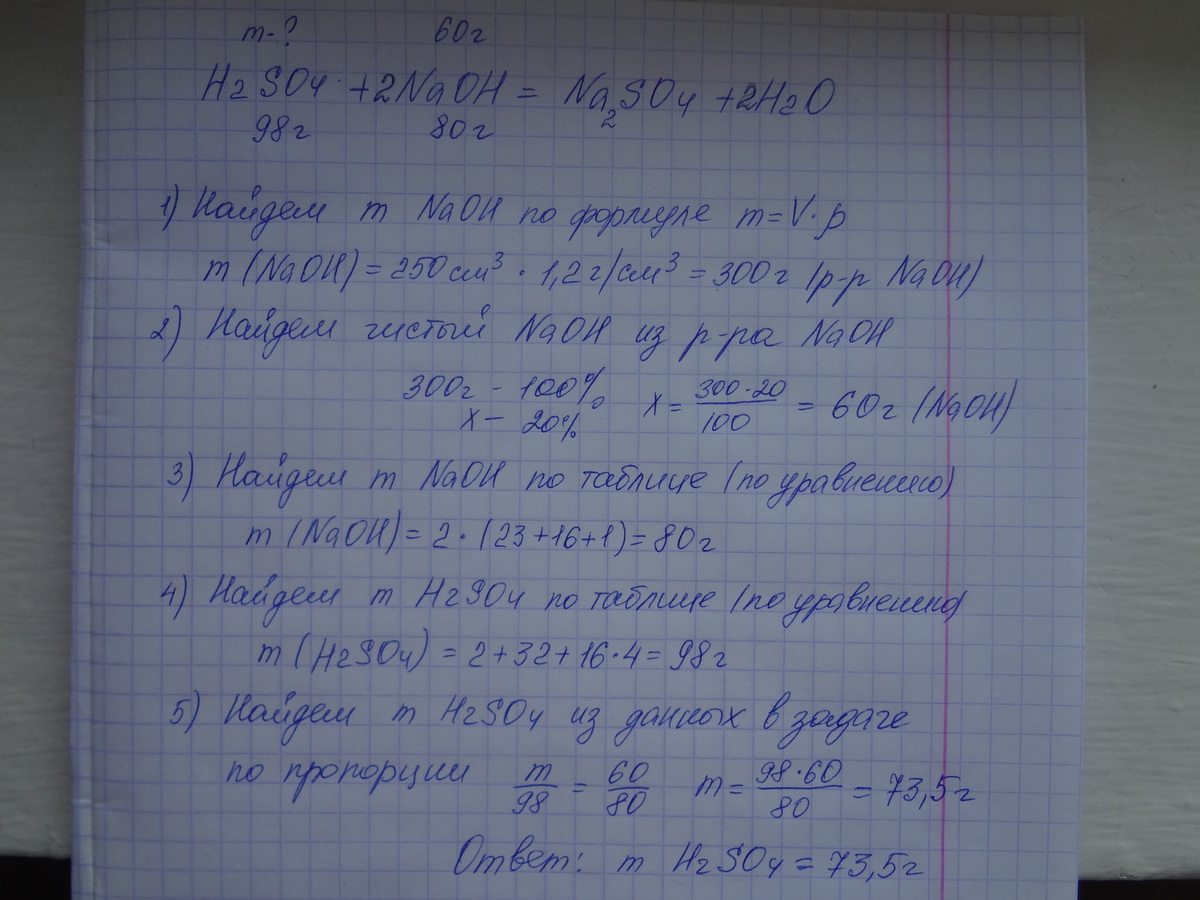 m-? 60г
H₂SO₄ + 2NaOH = Na₂SO₄ + 2H₂O
98г 80г
1) Найдем m NaOH по формуле m = V·ρ
m (NaOH) = 250 см³ · 1,2 г/см³ = 300 г (р-р NaOH)
2) Найдем чистый NaOH из р-ра NaOH
300г - 100% x = 300·20/100 = 60г (NaOH)
x - 20%
3) Найдем m NaOH по таблице (по уравнению)
m (NaOH) = 2·(23+16+1) = 80г
4) Найдем m H₂SO₄ по таблице (по уравнению)
m (H₂SO₄) = 2+32+16·4 = 98г
5) Найдем m H₂SO₄ из данных в задаче
по пропорции m/98 = 60/80 m = 98·60/80 = 73,5г
Ответ: m H₂SO₄ = 73,5г